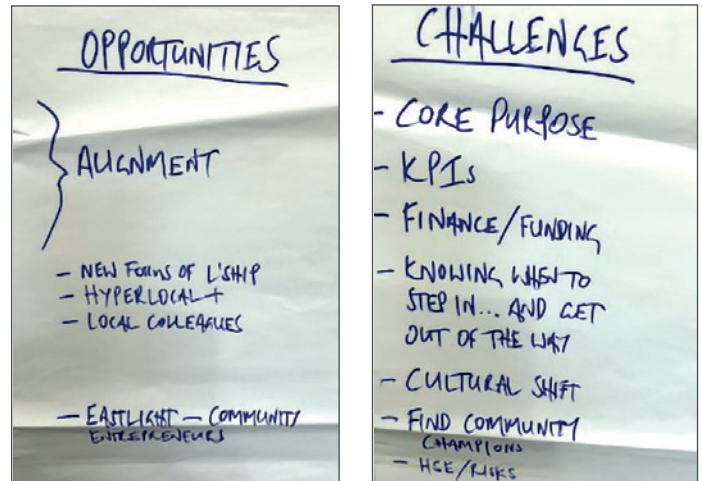 OPPORTUNITIES
ALIGNMENT
- NEW FORMS OF L'SHIP
- HYPERLOCAL +
- LOCAL COLLEAGUES
- EASTLIGHT - COMMUNITY
ENTREPRENEURS
CHALLENGES
- CORE PURPOSE
- KPIs
- FINANCE/FUNDING
- KNOWING WHEN TO
STEP IN... AND GET
OUT OF THE WAY
- CULTURAL SHIFT
- FIND COMMUNITY
CHAMPIONS
- HGE/RISKS